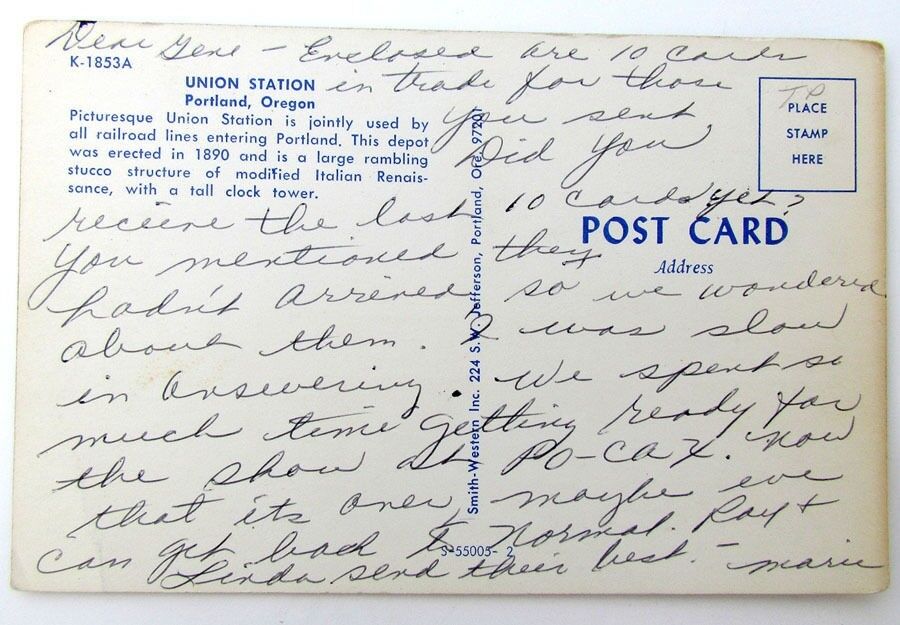 Dear Gene - Enclosed are 10 cards
in trade for those
you sent.
Did you
receive the last 10 cards yet?
You mentioned they
hadn't arrived so we wondered
about them. I was slow
in answering. We spent so
much time getting ready for
the show at PO-CAX. Now
that its over, maybe we
can get back to normal. Ray +
Linda send their best. - Marie
K-1853A
UNION STATION
Portland, Oregon
Picturesque Union Station is jointly used by
all railroad lines entering Portland. This depot
was erected in 1890 and is a large rambling
stucco structure of modified Italian Renais-
sance, with a tall clock tower.
Smith-Western Inc. 224 S.W. Jefferson, Portland, Ore. 97201
S-55005-2
PLACE
STAMP
HERE
POST CARD
Address